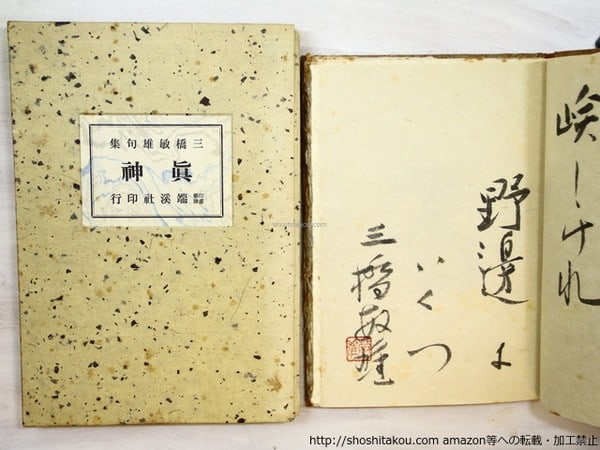 三橋敏雄句集
眞神
端溪社印行
しけれ
野邊
いくつ
三橋敏雄
shoshitakou.com
http://shoshitakou.com amazon等への転載・加工禁止